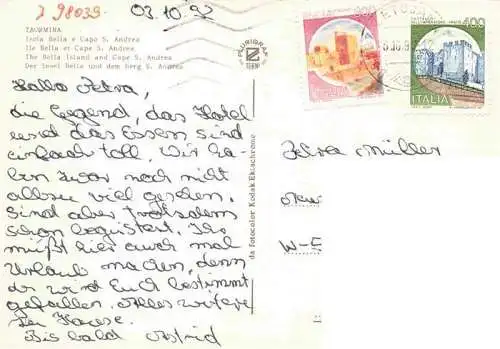 J 98039
03.10.92
TAORMINA
Isola Bella e Capo S. Andrea
Ile Bella et Cape S. Andrea
The Bella Island and Cape S. Andrea
Der Insel Bella und dem Berg S. Andrea
PLURIGRAF
TERNI
400
ITALIA
400
ITALIA
da fotocolor Kodak Ektachrome
Hallo Petra,
die Gegend, das Hotel
und das Essen sind
einfach toll. Wir ha-
ben zwar noch nicht
allzu viel gesehen,
sind aber trotzdem
schon begeistert. Ihr
müßt hier auch mal
Urlaub machen, denn
dir wird Euch bestimmt
gefallen. Alles weitere
zu Hause.
Bis bald Astrid
Petra Müller
W-